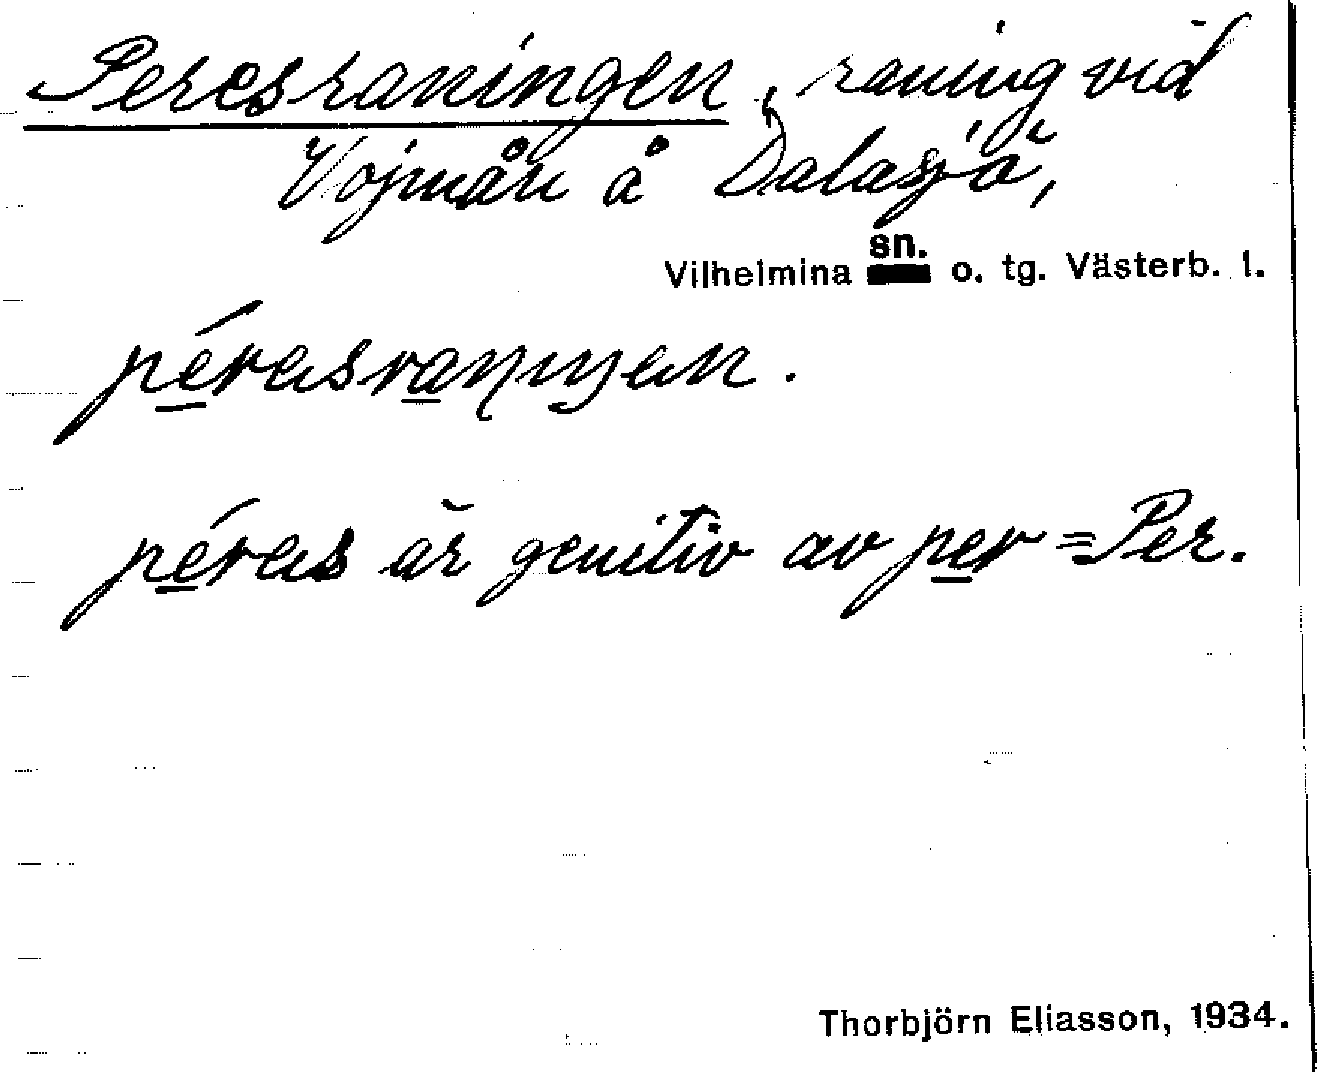 Peresraningen, raning vid
Vojmån å Dalasjö,
Vilhelmina sn. o. tg. Västerb. l.
péresraniŋen.
péres är genitiv av per = Per.
Thorbjörn Eliasson, 1934.